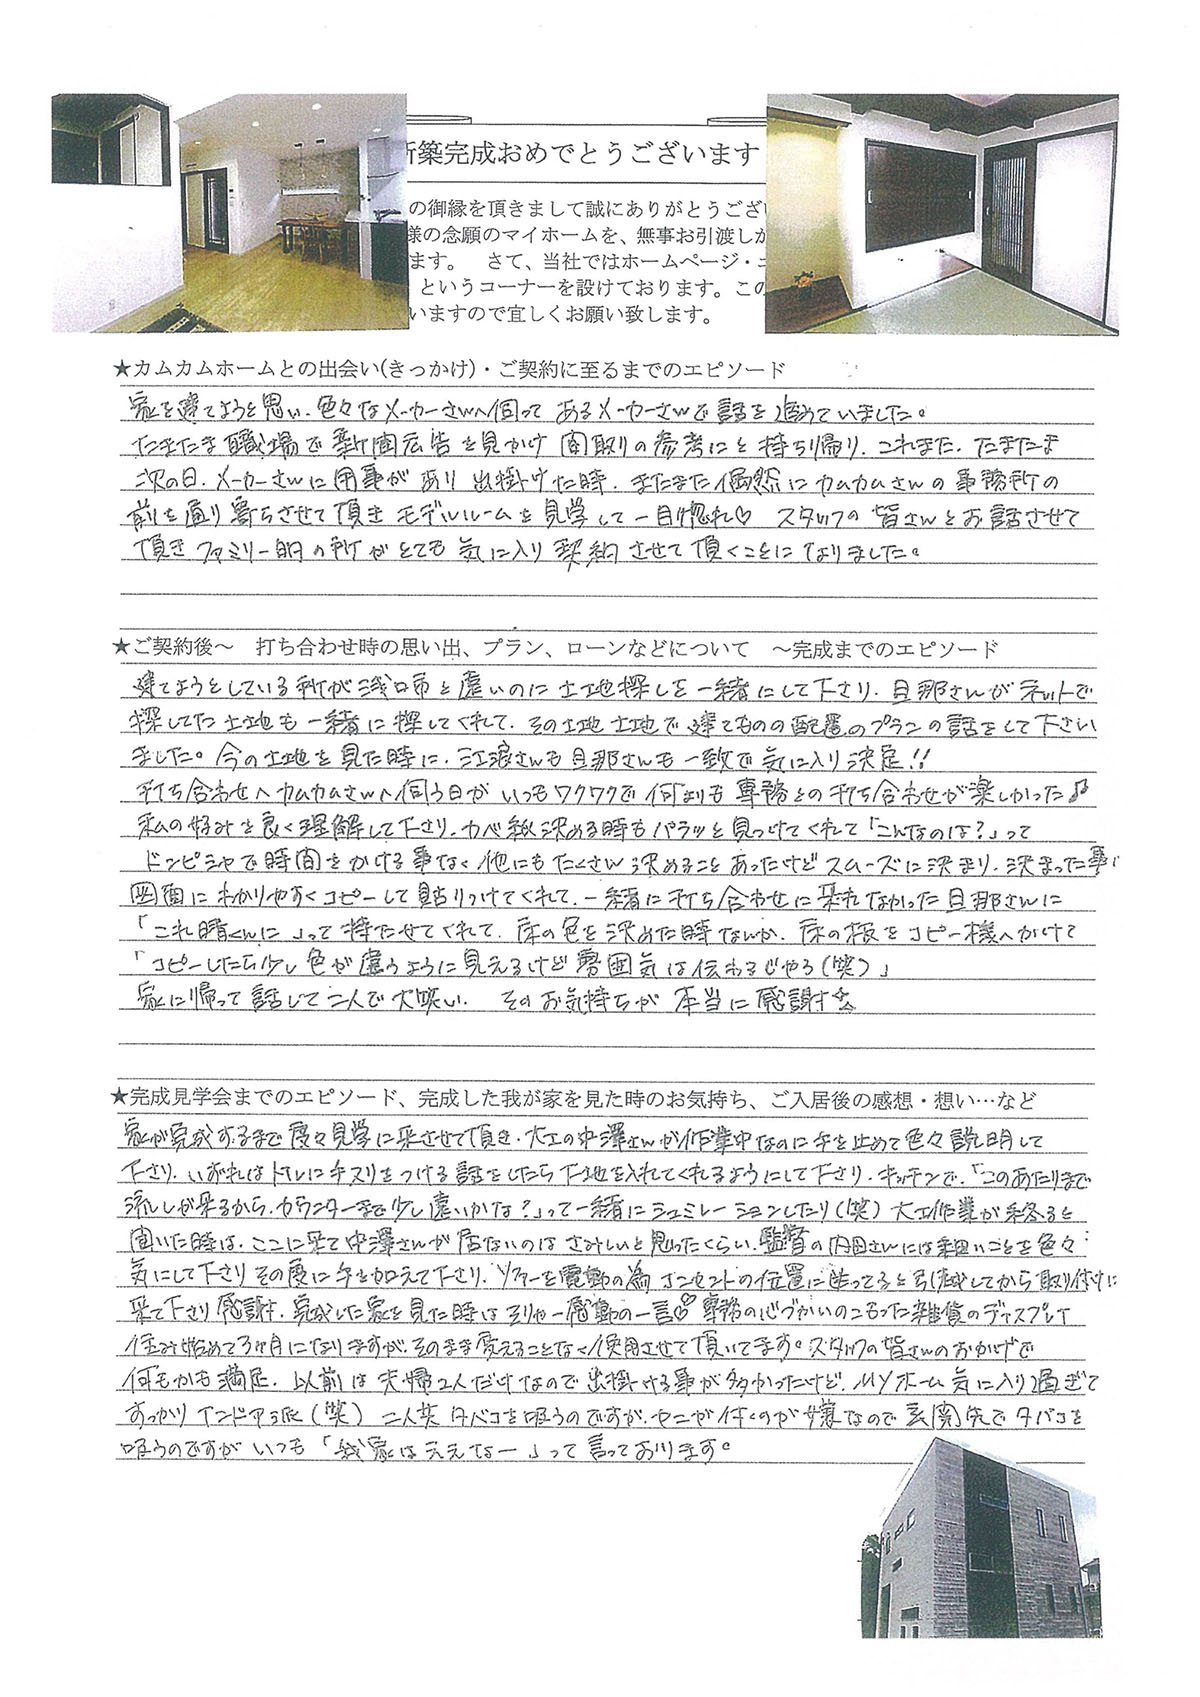 新築完成おめでとうございます
の御縁を頂きまして誠にありがとうござい
様の念願のマイホームを、無事お引渡しか
ます。 さて、当社ではホームページ・ニ
というコーナーを設けております。この
いますので宜しくお願い致します。
★カムカムホームとの出会い(きっかけ)・ご契約に至るまでのエピソード
家を建てようと思い、色々なメーカーさんへ伺って あるメーカーさんで話を進めていました。
たまたま職場で新聞広告を見かけ 間取りの参考にと持ち帰り、これまた、たまたま
次の日、メーカーさんに用事があり 出掛けた時、またまた偶然にカムカムさんの事務所の
前を通り寄らさせて頂き モデルルームを見学して一目惚れ♡ スタッフの皆さんとお話させて
頂き ファミリー的の所がとても気に入り契約させて頂くことになりました。
★ご契約後～ 打ち合わせ時の思い出、プラン、ローンなどについて ～完成までのエピソード
建てようとしている所が浅口市と遠いのに土地探しを一緒にして下さり、旦那さんがネットで
探してた土地も一緒に探してくれて、その土地土地で建てものの配置のプランの話をして下さい
ました。今の土地を見た時に、江渡さんも旦那さんも一致で気に入り決定!!
打ち合わせへカムカムさんへ伺う日がいつもワクワクで何よりも専務との打ち合わせが楽しかった♪
私の好みを良く理解して下さり、カベ紙決める時もパラッと見つけてくれて「こんなのは?」って
ドンピシャで時間をかける事なく、他にもたくさん決めることあったけどスムーズに決まり、決まった事は
図面にわかりやすくコピーして貼りつけてくれて、一緒に打ち合わせに来れなかった旦那さんに
「これ晴くんに」って持たせてくれて、床の色を決めた時なんか、床の板をコピー機へかけて
「コピーしたら少し色が違うように見えるけど雰囲気は伝わるじゃろ(笑)」
家に帰って話して二人で大笑い、 そのお気持ちが本当に感謝す☆
★完成見学会までのエピソード、完成した我が家を見た時のお気持ち、ご入居後の感想・想い…など
家が完成するまで度々見学に来させて頂き、大工の中澤さんが作業中なのに手を止めて色々説明して
下さり、いずれはトイレにテスリをつける話をしたら下地を入れてくれるようにして下さり、キッチンで、「このあたりまで
流しが来るから、カウンターまで少し遠いかな?」って一緒にシュミレーションしたり(笑) 大工作業が終ると
聞いた時は、ここに来て中澤さんが居ないのはさみしいと思ったくらい、監督の内田さんには細いことを色々
気にして下さり その度に手を加えて下さり、ソファーを電動の為 コンセントの位置に迷ってると引っ越してから取り付けに
来て下さり感謝、完成した家を見た時はそりゃー感動の一言♡ 専務の心づかいのこもった雑貨のディスプレイ
住み始めて3ヶ月になりますが、そのまま変えることなく使用させて頂いてます。スタッフの皆さんのおかげで
何もかも満足、以前は夫婦2人だけなので出掛ける事が多かったけど、MYホーム気に入り過ぎて
すっかりインドア派(笑) 二人共タバコを吸うのですが、ヤニが付くのが嫌なので玄関先でタバコを
吸うのですが いつも「我家はええなー」って言っております。